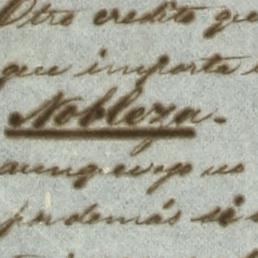 Otro credito que
que importa
Nobleza.
aunque yo no
pr demás si